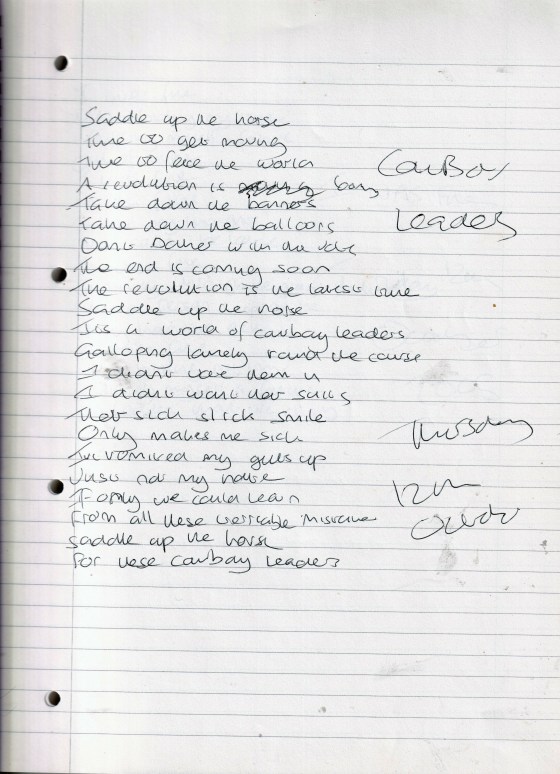 Saddle up the horse
Time to get moving
Time to face the world
Cowboy
A revolution is being born
Take down the banners
Take down the balloons
Leaders
Don't bother with the
The end is coming soon
The revolution is the latest time
Saddle up the horse
It's a world of cowboy leaders
Galloping lamely round the course
I didn't vote them in
I didn't want their suits
Their sick slick smile
Only makes me sick
Thursday
I've vomited my guts up
Just not my
12th
If only we could learn
October
From all these terrible mistakes
Saddle up the horse
For these cowboy leaders